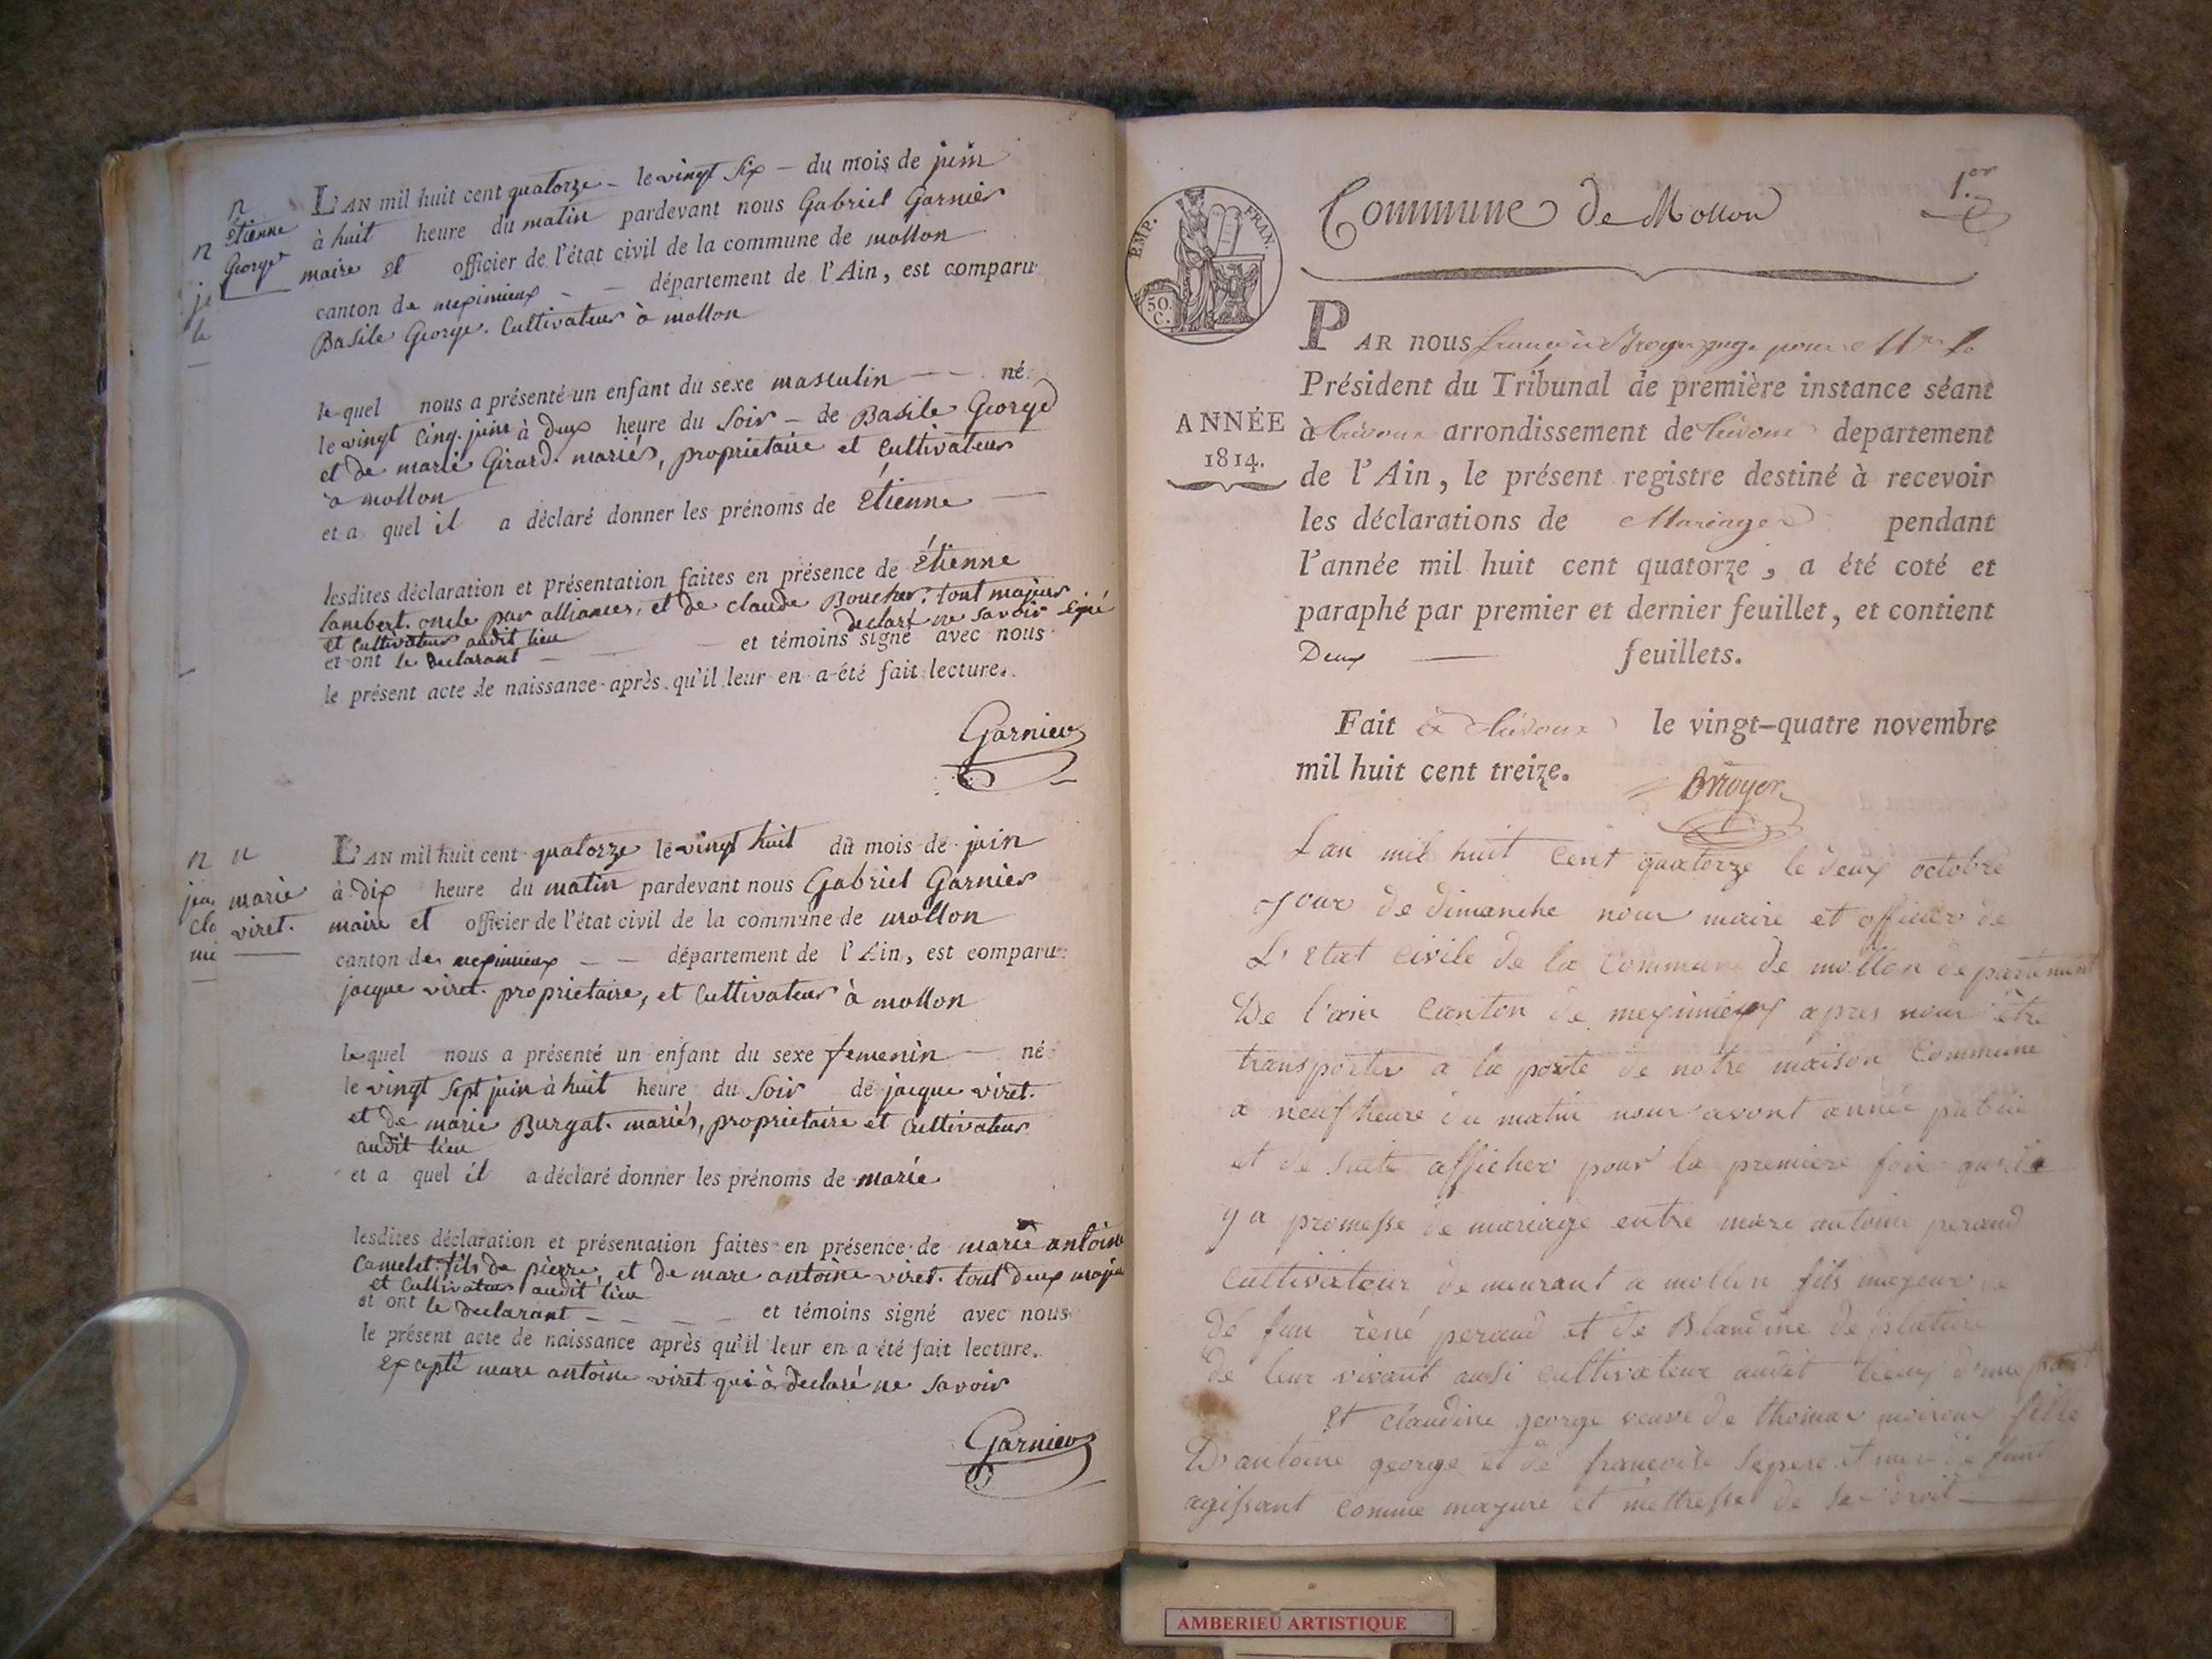 n
Étienne
George
L'AN mil huit cent quatorze - le vingt six - du mois de juin
à huit heure du matin pardevant nous Gabriel Garnier
maire et officier de l'état civil de la commune de mollon
canton de meximieux - - département de l'Ain, est comparu
Basile George. Cultivateur à mollon
le quel nous a présenté un enfant du sexe masculin - - né
le vingt cinq. juin à deux heure du Soir - de Basile George
et de marie Girard. mariés, proprietaire et Cultivateur
à mollon
et a quel il a déclaré donner les prénoms de Étienne
lesdites déclaration et présentation faites en présence de Étienne
Lambert. oncle par alliance, et de claude Boucher. tout majeur
et Cultivateur audit lieu declaré ne Savoir signé
et ont le declarant - - et témoins signé avec nous
le présent acte de naissance après qu'il leur en a été fait lecture.
Garnier
n
marie
viret.
L'AN mil huit cent quatorze le vingt huit du mois de juin
à dix heure du matin pardevant nous Gabriel Garnier
maire et officier de l'état civil de la commune de mollon
canton de meximieux - - département de l'Ain, est comparu
jacque viret. proprietaire, et Cultivateur à mollon
le quel nous a présenté un enfant du sexe femenin - né
le vingt Sept juin à huit heure du Soir de jacque viret.
et de marie Burgat. mariés, proprietaire et Cultivateur
audit lieu
et a quel il a déclaré donner les prénoms de marie
lesdites déclaration et présentation faites en présence de marie antoine
Camelet. fils de pierre, et de marc antoine viret. tout deux
et Cultivateur audit lieu
et ont le declarant - - - - et témoins signé avec nous
le présent acte de naissance après qu'il leur en a été fait lecture.
Excepté marc antoine viret qui à declaré ne Savoir
Garnier
1.er
Commune de Mollon
EMP. FRAN.
50 C.
ANNÉE
1814.
PAR nous
Président du Tribunal de première instance séant
à Trévoux arrondissement de Trévoux departement
de l'Ain, le présent registre destiné à recevoir
les déclarations de Mariages pendant
l'année mil huit cent quatorze, a été coté et
paraphé par premier et dernier feuillet, et contient
Deux feuillets.
Fait à Trévoux le vingt-quatre novembre
mil huit cent treize.
L'an mil huit cent quatorze le deux octobre
jour de dimanche nous maire et officier de
L'etat civile de la commune de mollon departement
De l'ain canton de meximieux apres nous être
transporter a la porte de notre maison Commune
a neuf heure du matin nous avont
et de suite afficher pour la premiere fois
y a promesse de mariage entre marc antoine peraud
cultivateur demeurant a mollon fils majeur de
de feu rèné peraud et de Blandine de
de leur vivant ausi cultivateur audit lieux d'une part
Et claudine george veuve de thomas fille
D'antoine george et de francoise
agissant comme majure et mettresse de ses droit
AMBERIEU ARTISTIQUE